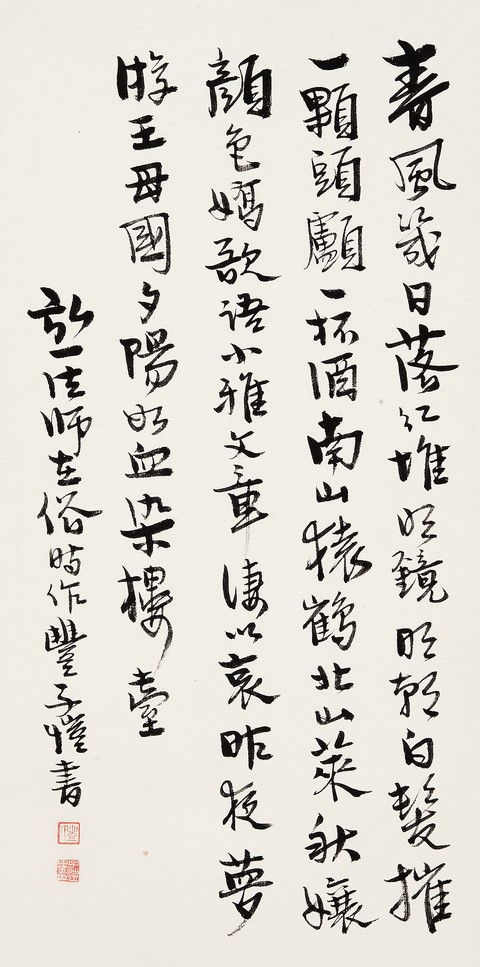 春風幾日落紅堆明鏡明朝白髮摧
一顆頭顱一杯酒南山猿鶴北山萊秋孃
顏色嬌欲語小雅文章凄以哀昨夜夢
游王母國夕陽如血染樓臺
弘一法師在俗時作豐子愷書